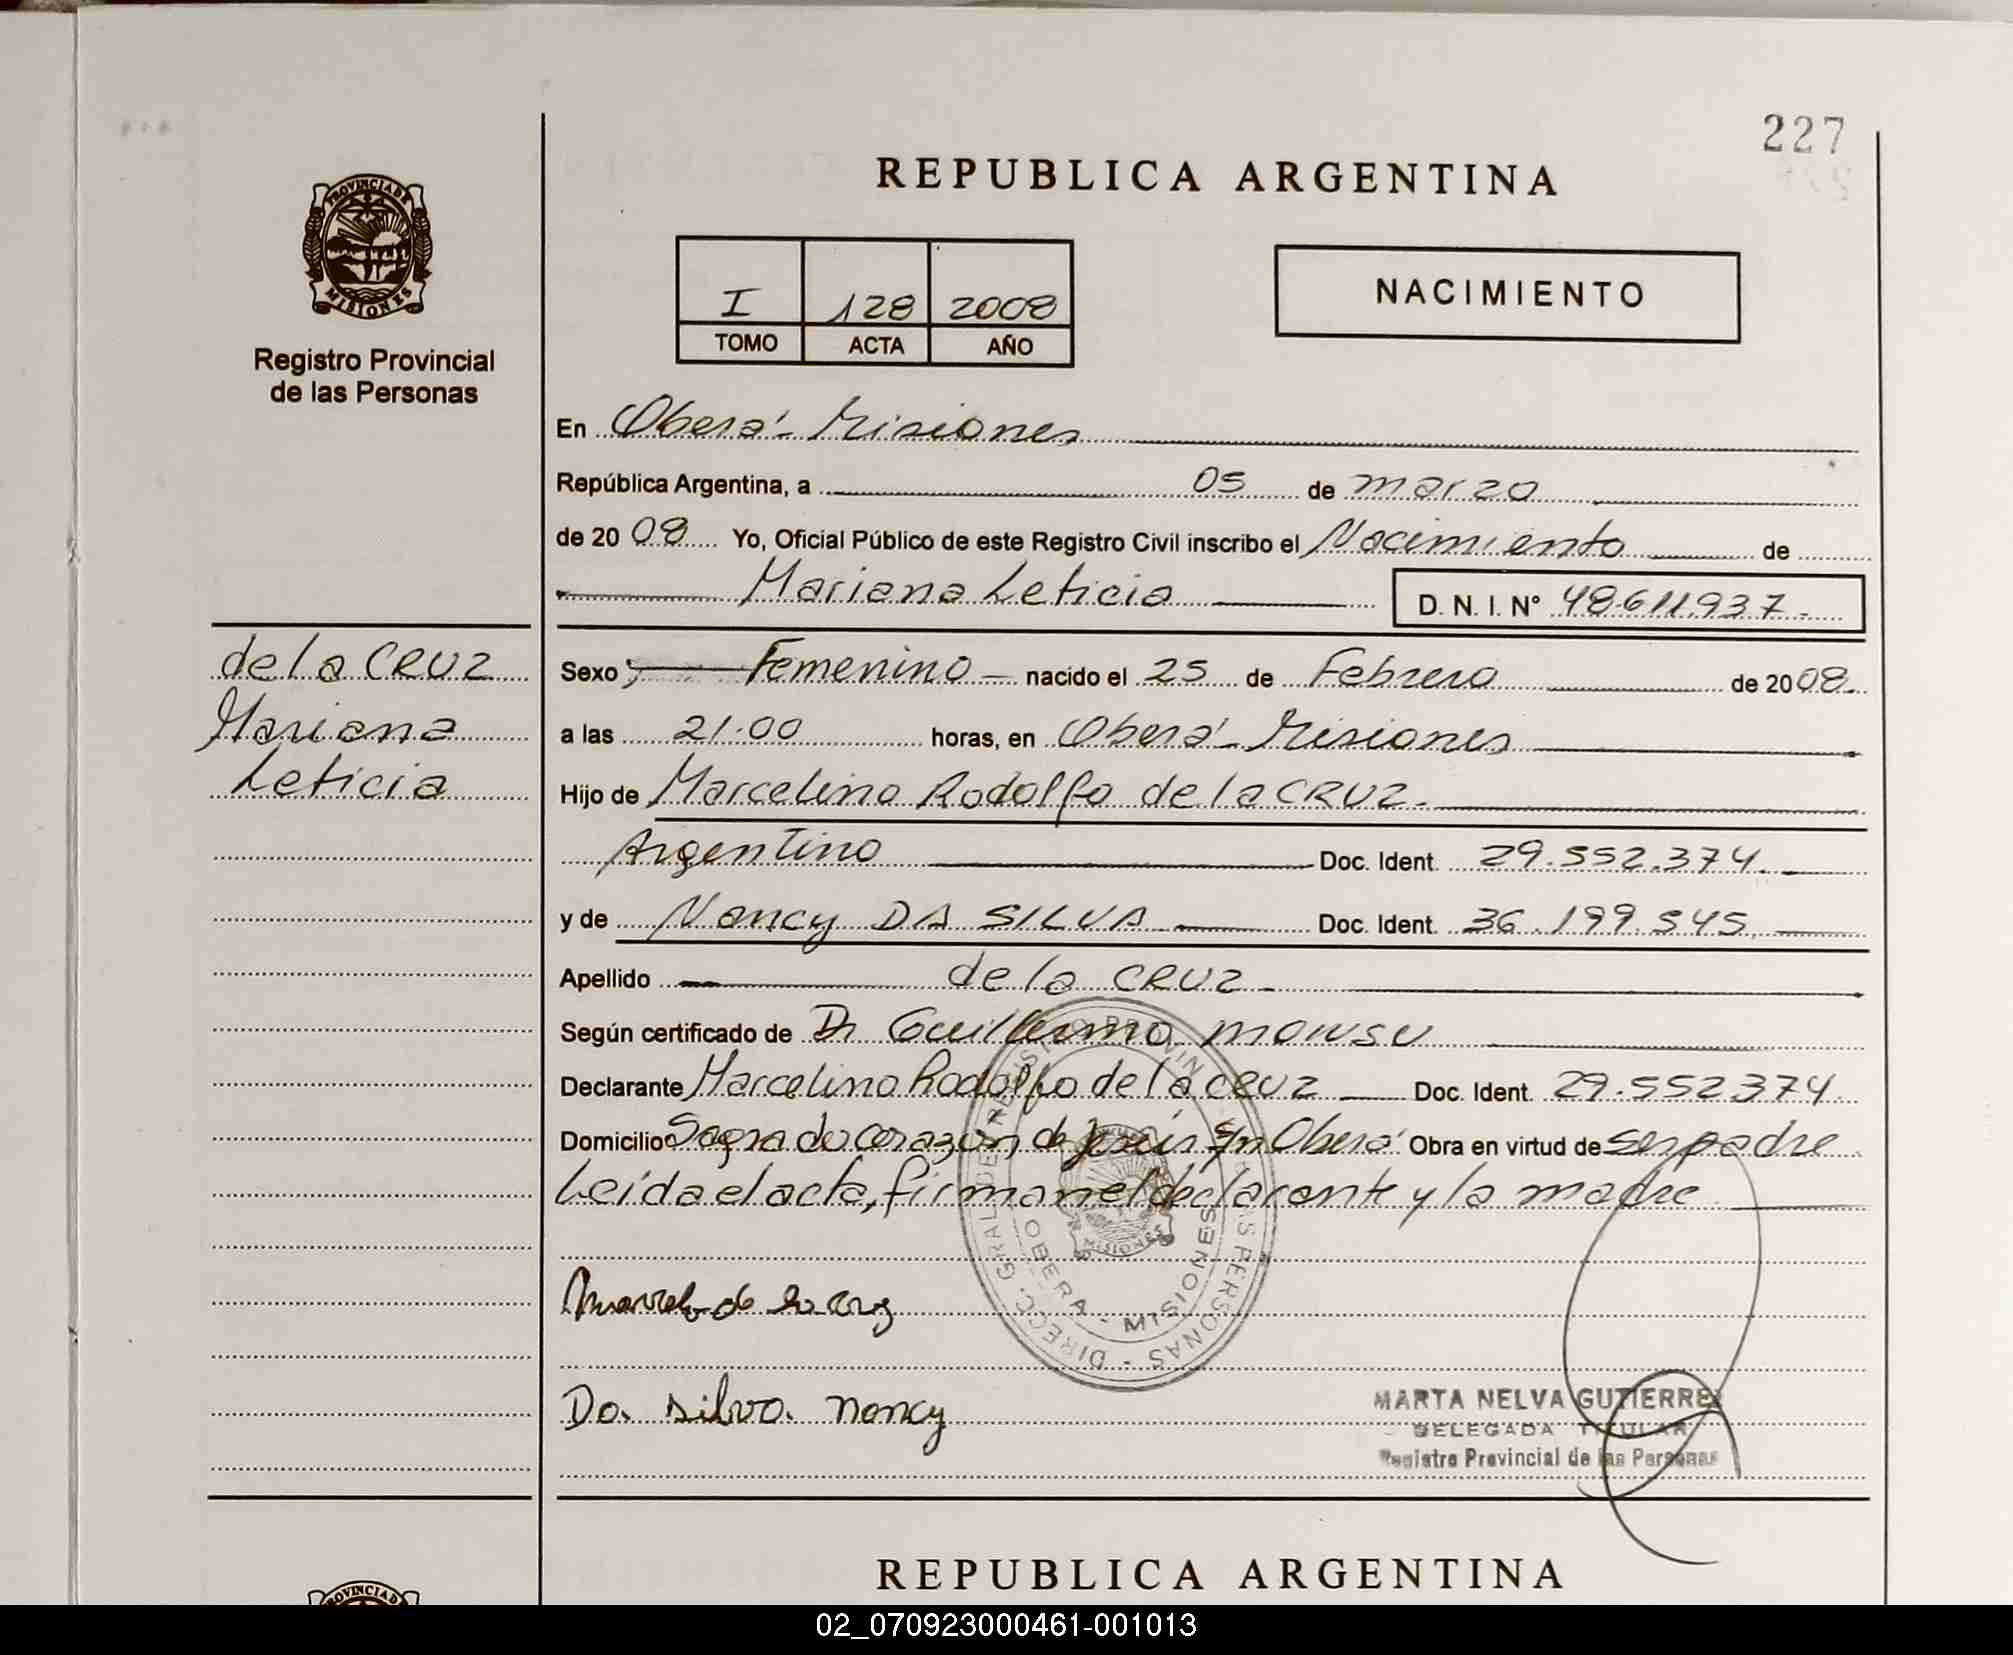 227
REPUBLICA ARGENTINA
PROVINCIA DE
MISIONES
Registro Provincial
de las Personas
I 128 2008
TOMO ACTA AÑO
NACIMIENTO
En Oberá - Misiones
República Argentina, a 05 de marzo
de 20 08 Yo, Oficial Público de este Registro Civil inscribo el Nacimiento de
Mariana Leticia D. N. I. Nº 48.611.937.-
de la CRUZ
Mariana
Leticia
Sexo Femenino - nacido el 25 de Febrero de 20 08.
a las 21.00 horas, en Oberá - Misiones
Hijo de Marcelino Rodolfo de la CRUZ.
Argentino Doc. Ident. 29.552.374.
y de Nancy DA SILVA Doc. Ident. 36.199.545.
Apellido de la CRUZ
Según certificado de Dr Guillermo
Declarante Marcelino Rodolfo de la CRUZ Doc. Ident. 29.552.374.
Domicilio Sagrado Corazón de Jesús S/n Oberá Obra en virtud de ser padre
Leída el acta, firman el declarante y la madre
DIRECC. GRAL DEL REGISTRO PROVIN LAS PERSONAS -
OBERA - MISIONES
MISIONES
de la Cruz
Da Silva Nancy
MARTA NELVA GUTIERREZ
DELEGADA TITULAR
Registro Provincial de las Personas
REPUBLICA ARGENTINA
PROVINCIA D
02_070923000461-001013